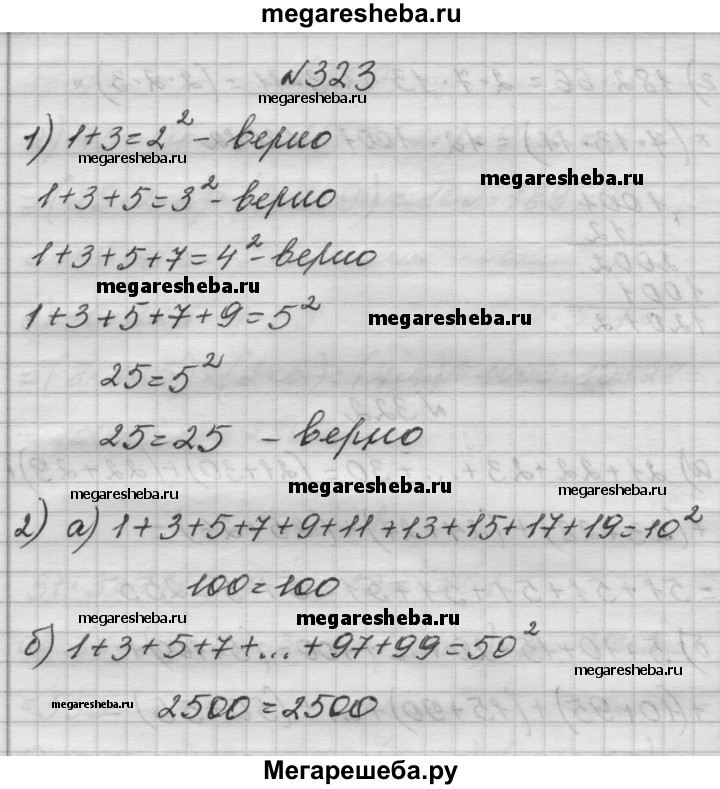 megaresheba.ru
№323
megaresheba.ru
1) 1+3=2² - верно
megaresheba.ru
megaresheba.ru
1+3+5=3² - верно
1+3+5+7=4² - верно
megaresheba.ru
1+3+5+7+9=5²
megaresheba.ru
25=5²
25=25 - верно
megaresheba.ru
megaresheba.ru
megaresheba.ru
2) а) 1+3+5+7+9+11+13+15+17+19=10²
100=100
megaresheba.ru
megaresheba.ru
б) 1+3+5+7+...+97+99=50²
megaresheba.ru
megaresheba.ru
2500=2500
Мегарешеба.ру